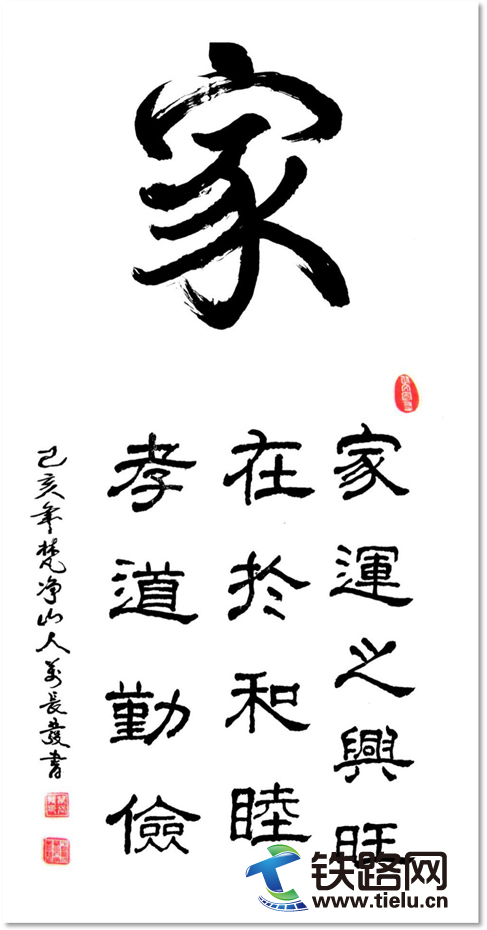 家
家運之興旺
在於和睦
孝道勤儉
己亥年梵净山人萬長發書
铁路网
www.tielu.cn